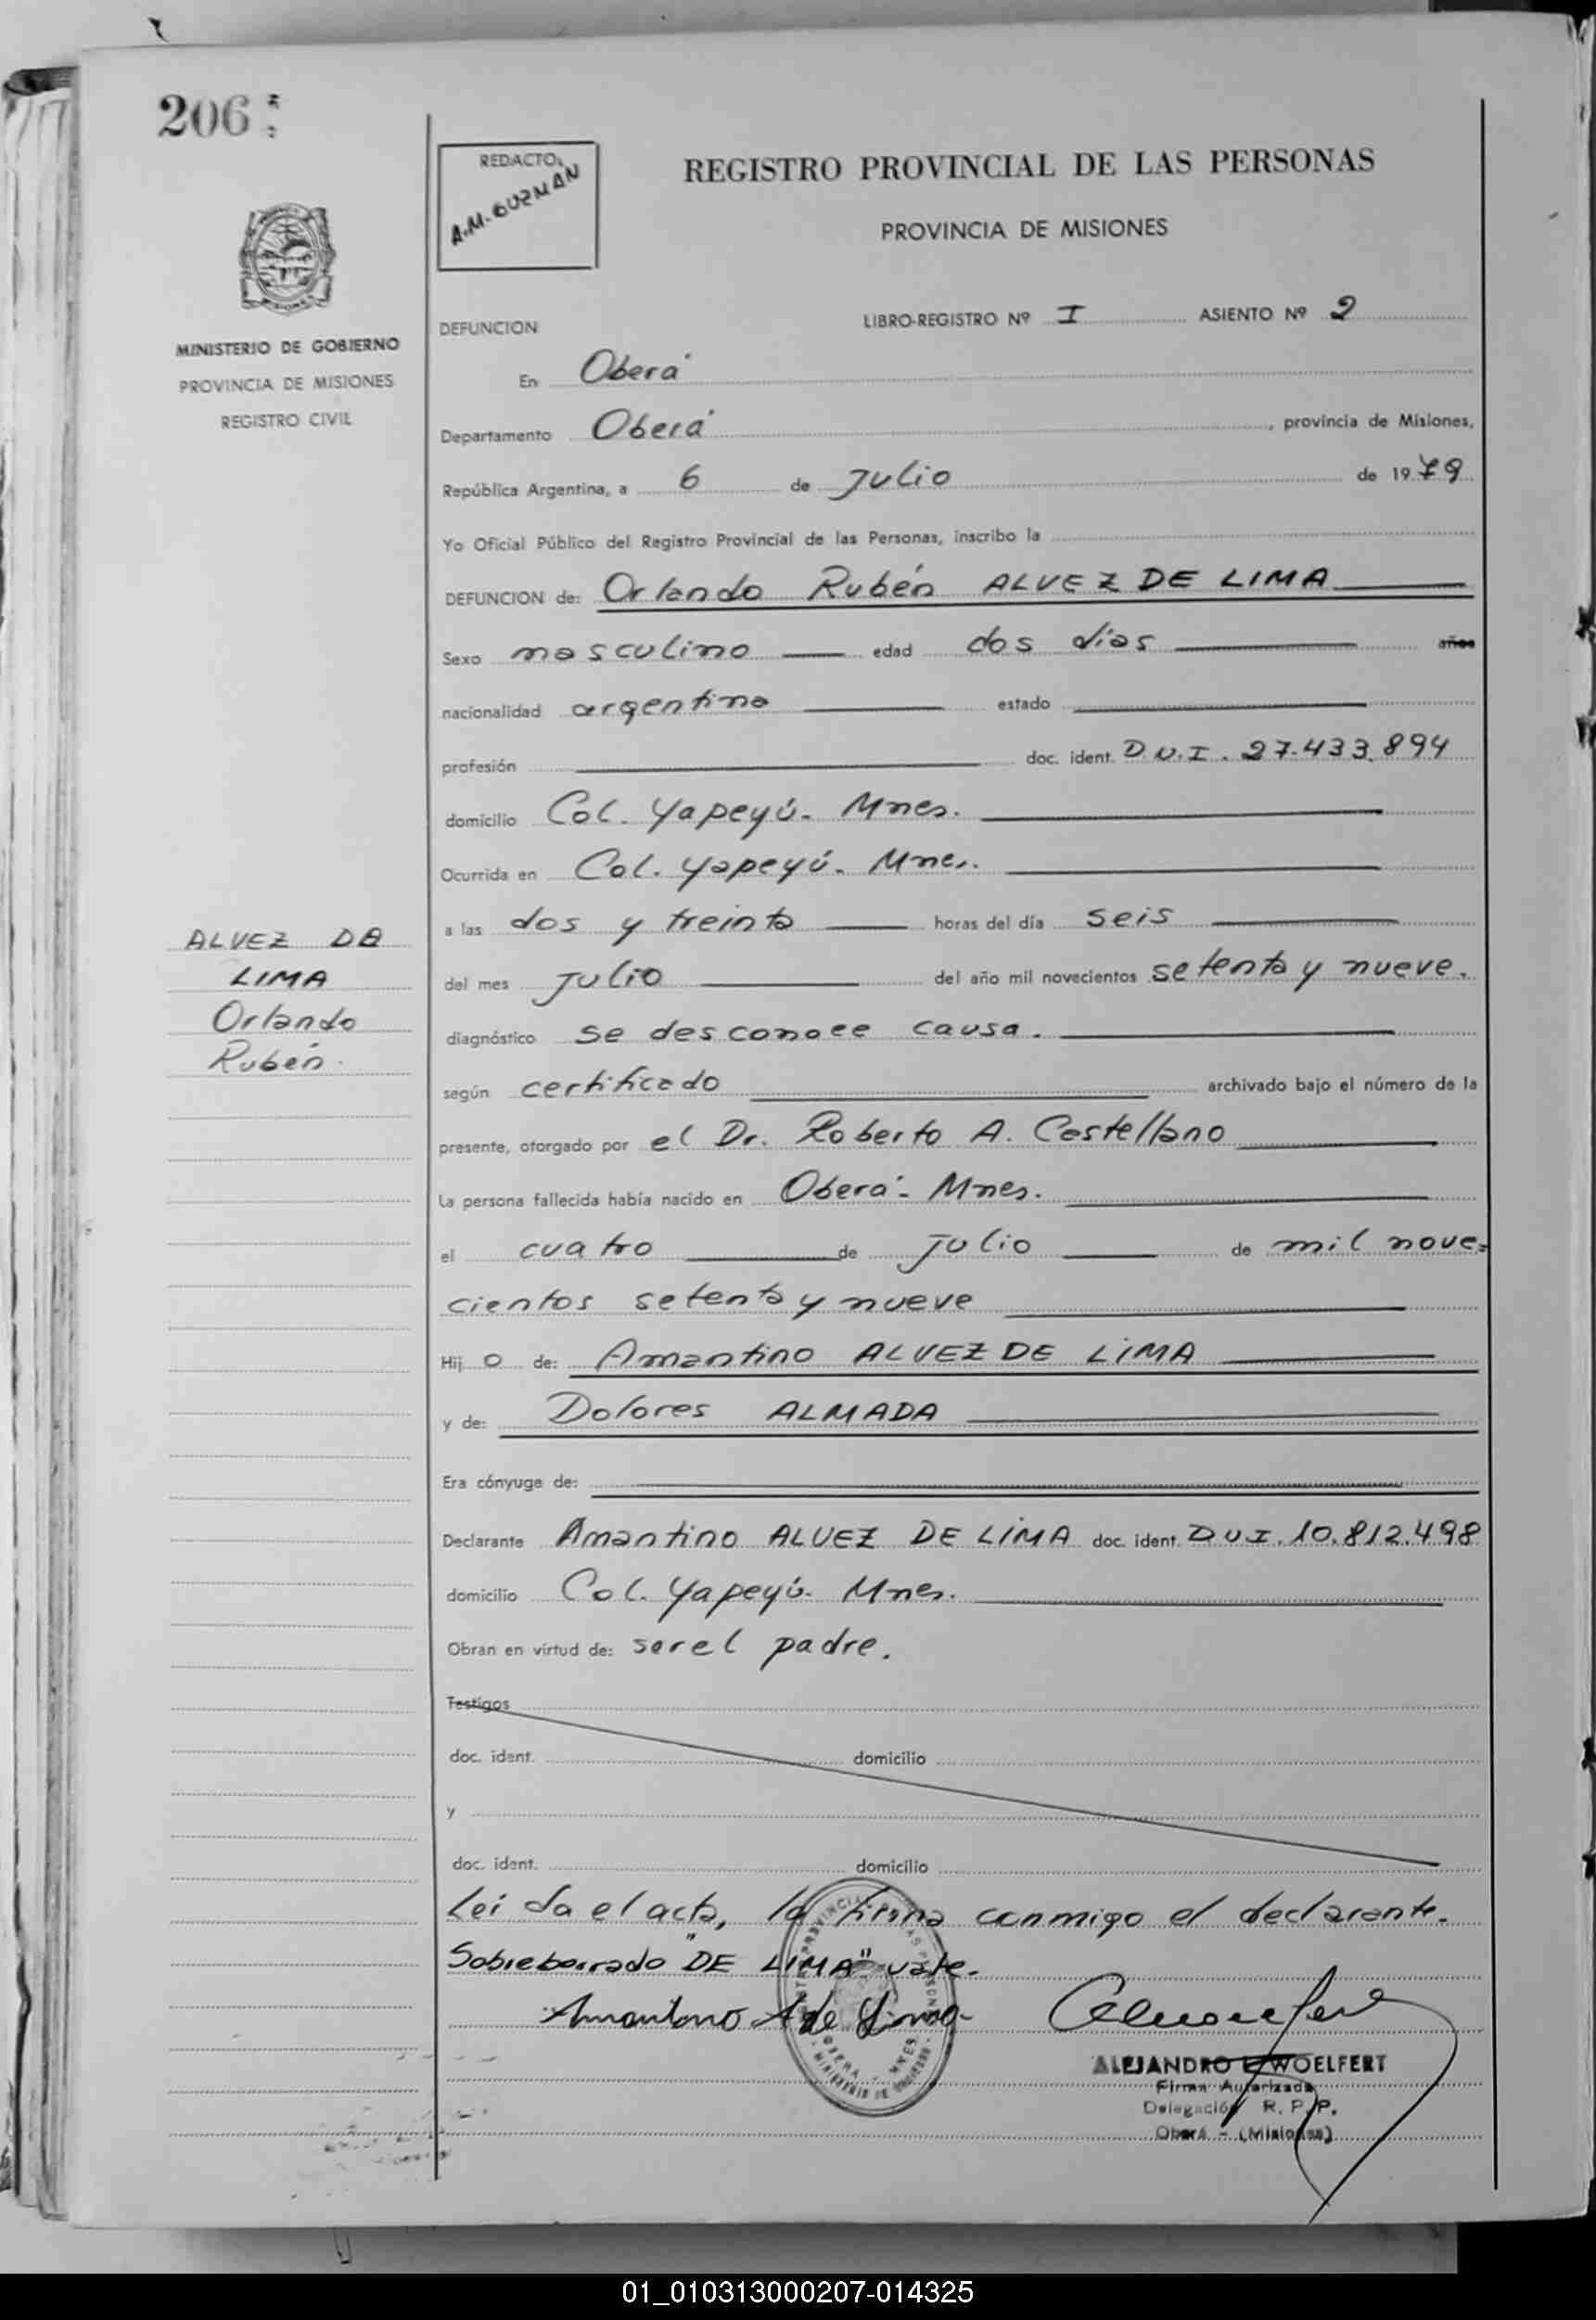 206
REDACTO:
A.M. GUZMAN
REGISTRO PROVINCIAL DE LAS PERSONAS
PROVINCIA DE MISIONES
MINISTERIO DE GOBIERNO
PROVINCIA DE MISIONES
REGISTRO CIVIL
DEFUNCION
LIBRO-REGISTRO Nº I ASIENTO Nº 2
En Oberá
Departamento Oberá, provincia de Misiones,
República Argentina, a 6 de Julio de 1979
Yo Oficial Público del Registro Provincial de las Personas, inscribo la
DEFUNCION de: Orlando Rubén ALVEZ DE LIMA
Sexo masculino edad dos días años
nacionalidad argentina estado
profesión doc. ident. D.U.I. 27.433.894
domicilio Col. Yapeyú. Mnes.
Ocurrida en Col. Yapeyú. Mnes.
a las dos y treinta horas del día seis
del mes Julio del año mil novecientos setenta y nueve.
diagnóstico se desconoce causa.
según certificado archivado bajo el número de la
presente, otorgado por el Dr. Roberto A. Castellano
La persona fallecida había nacido en Oberá - Mnes.
el cuatro de Julio de mil nove=
cientos setenta y nueve
Hijo de: Amantino ALVEZ DE LIMA
y de: Dolores ALMADA
Era cónyuge de:
Declarante Amantino ALVEZ DE LIMA doc. ident. D.U.I. 10.812.498
domicilio Col. Yapeyú. Mnes.
Obran en virtud de: ser el padre.
Testigos
doc. ident. domicilio
y
doc. ident. domicilio
Leída el acta, la firma conmigo el declarante.
Sobreborrado "DE LIMA" vale.
Amantino A de Lima
ALEJANDRO WOELFERT
Firma Autorizada
Delegación R. P. P.
Oberá - (Misiones)
ALVEZ DE
LIMA
Orlando
Rubén.
01_010313000207-014325